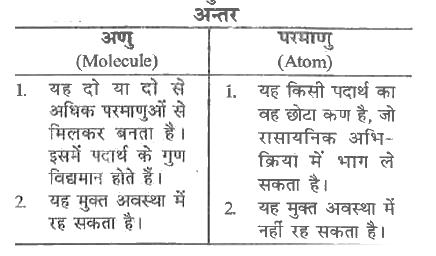 अन्तर
अणु
(Molecule)
1. यह दो या दो से
अधिक परमाणुओं से
मिलकर बनता है।
इसमें पदार्थ के गुण
विद्यमान होते हैं।
2. यह मुक्त अवस्था में
रह सकता है।
परमाणु
(Atom)
1. यह किसी पदार्थ का
वह छोटा कण है, जो
रासायनिक अभि-
क्रिया में भाग ले
सकता है।
2. यह मुक्त अवस्था में
नहीं रह सकता है।